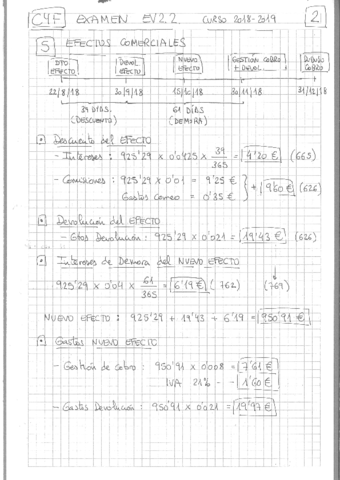 C4F EXAMEN EV2.2. CURSO 2018-2019 2
5 EFECTOS COMERCIALES
DTO EFECTO DEVOL EFECTO NUEVO EFECTO GESTIÓN COBRO + DEVOL COBRO
22/8/18 30/9/18 15/10/18 30/11/18 31/12/18
39 DÍAS. (DESCUENTO) 61 DÍAS (DEMORA)
Descuento del EFECTO
- Intereses: 925'29 x 0'0425 x 39/365 = 4'20 € (665)
- Comisiones: 925'29 x 0'01 = 9'25 €
Gastos correo = 0'35 € } + 9'60 € (626)
Devolución del EFECTO
- Gtos Devolución: 925'29 x 0'021 = 19'43 € (626)
Intereses de Demora del NUEVO EFECTO
925'29 x 0'04 x 61/365 = 6'19 € (762) (769)
NUEVO EFECTO: 925'29 + 19'43 + 6'19 = 950'91 €
Gastos NUEVO EFECTO
- Gestión de cobro: 950'91 x 0'008 = 7'61 €
IVA 21% - - 1'60 €
- Gastos Devolución: 950'91 x 0'021 = 19'97 €